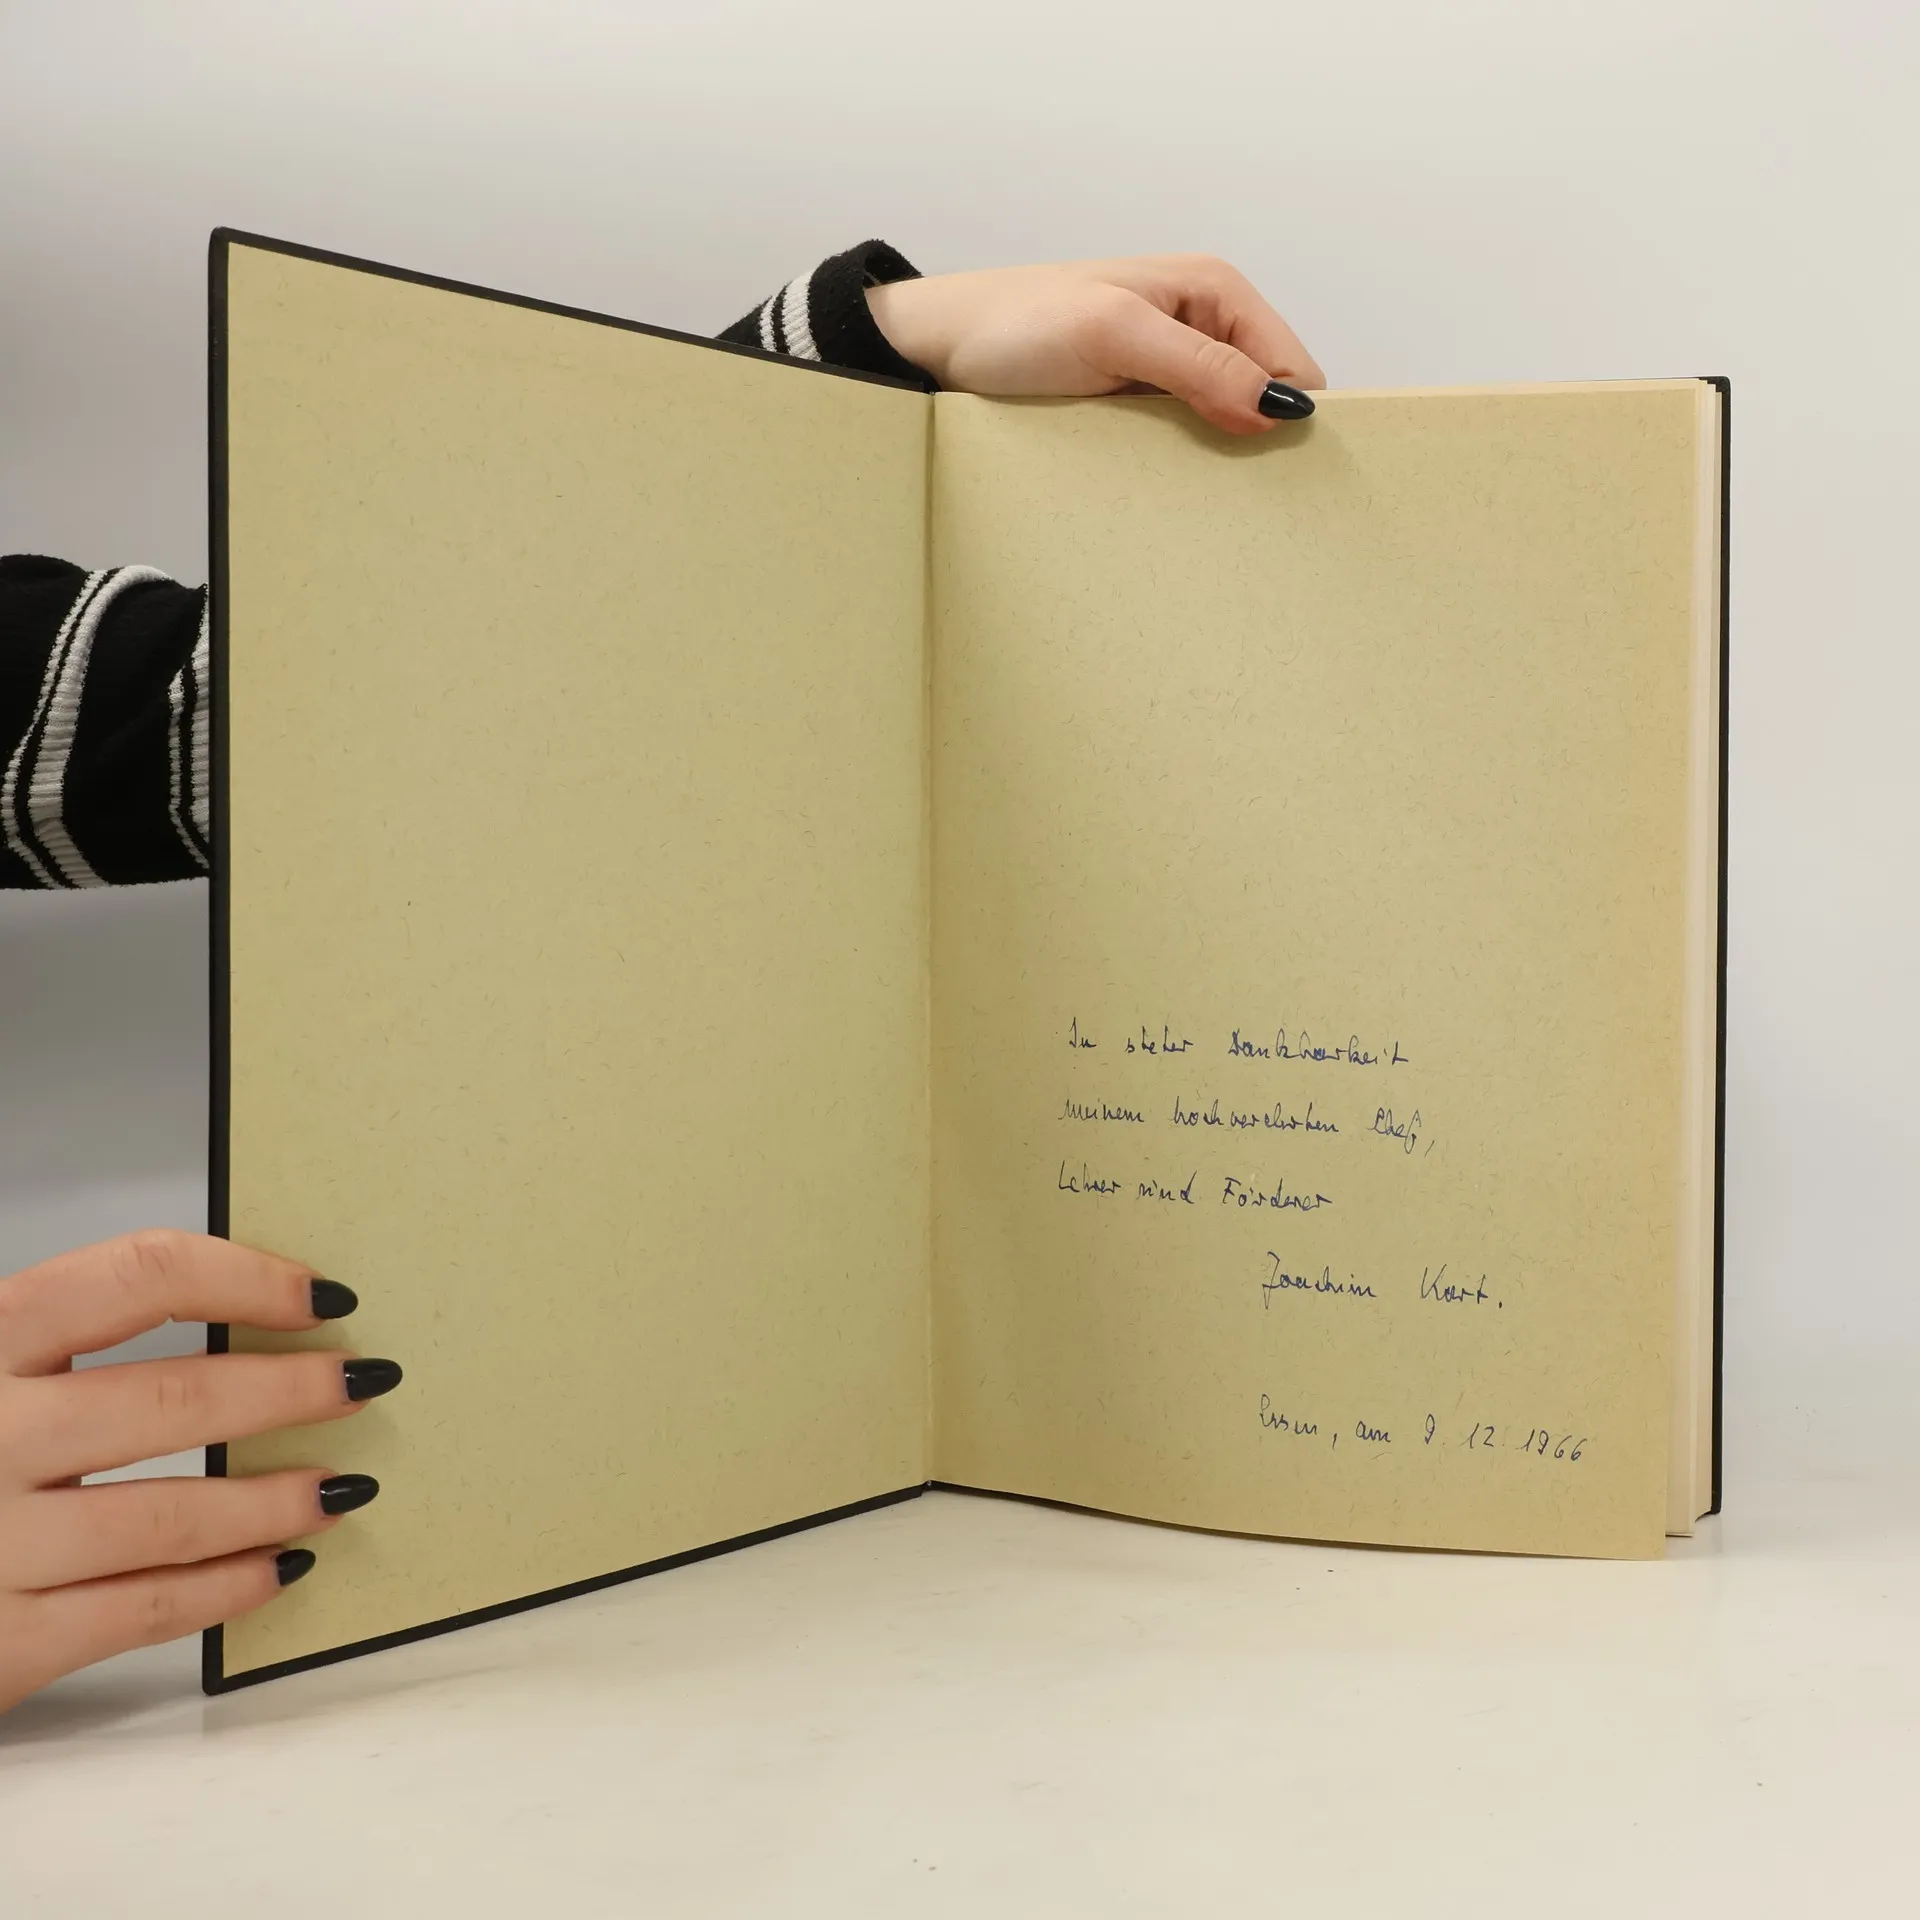 In steter Dankbarkeit
meinem hochverehrten Chef,
Lehrer und Förderer
Joachim Kart.
Essen, am 9. 12. 1966